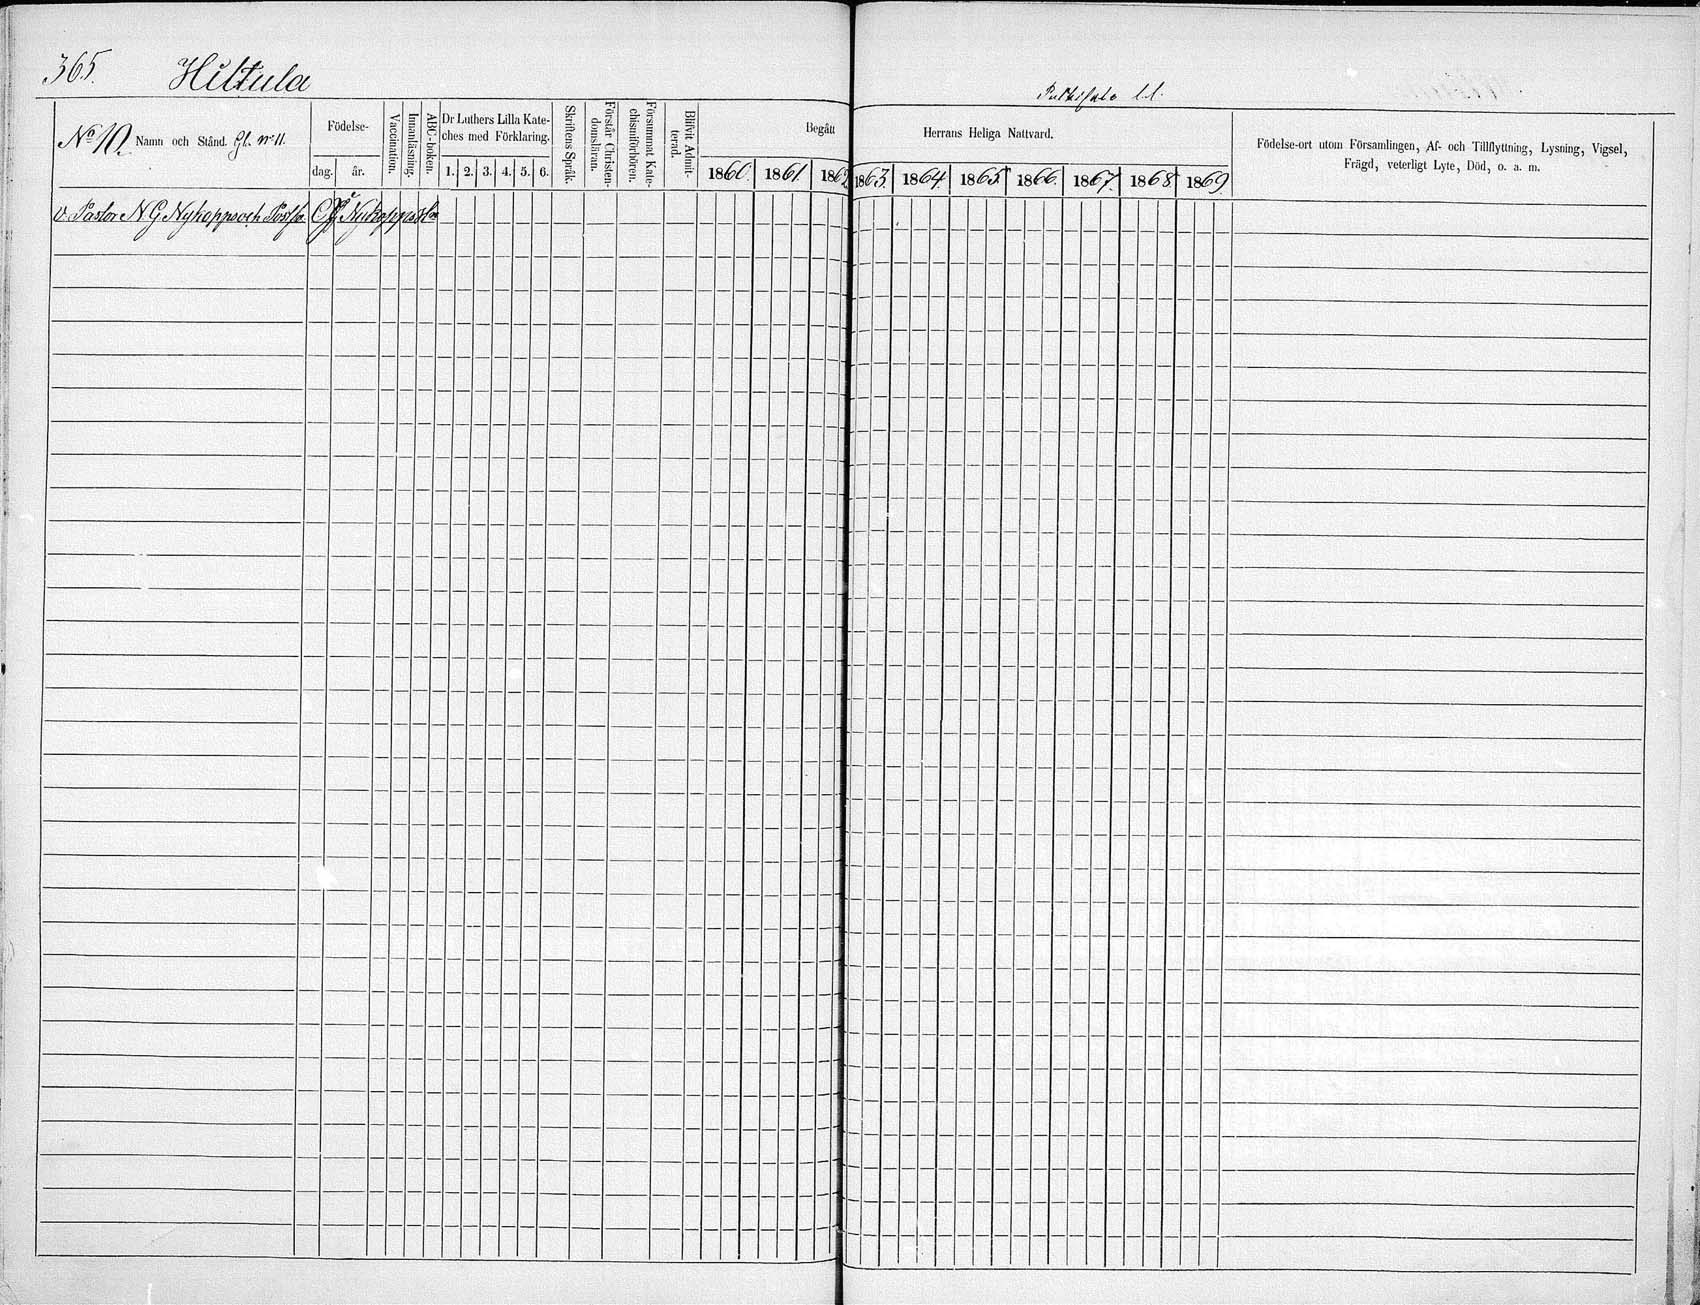 365. Hiltula
No 10. Namn och Stånd. Gl. No 11.
Födelse-
dag. år.
Vaccination.
Innanläsning.
ABC-boken.
Dr Luthers Lilla Kate-
ches med Förklaring.
1. 2. 3. 4. 5. 6.
Skriftens Språk.
Förstår Christen-
domsläran.
Försummat Kate-
chismiförhören.
Blifvit Admit-
terad.
Begått Herrans Heliga Nattvard.
1860. 1861 1862 1863. 1864. 1865 1866. 1867. 1868 1869
Födelse-ort utom Församlingen, Af- och Tillflyttning, Lysning, Vigsel,
Frägd, veterligt Lyte, Död, o. a. m.
v. Pastor N G Nykopp och